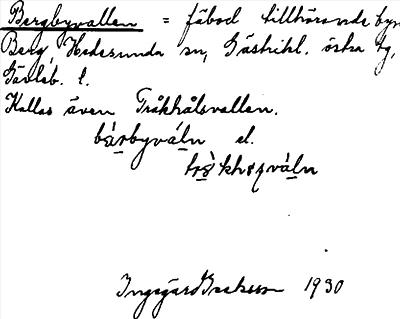 Bergbyvallen = fäbod tillhörande byn
Berg Hedesunda sn, Gästrikl. östra tg,
Gävleb. l.
Kallas även Tråkhålsvallen.
bärbyväln el.
Ingegärd Isaksson 1930